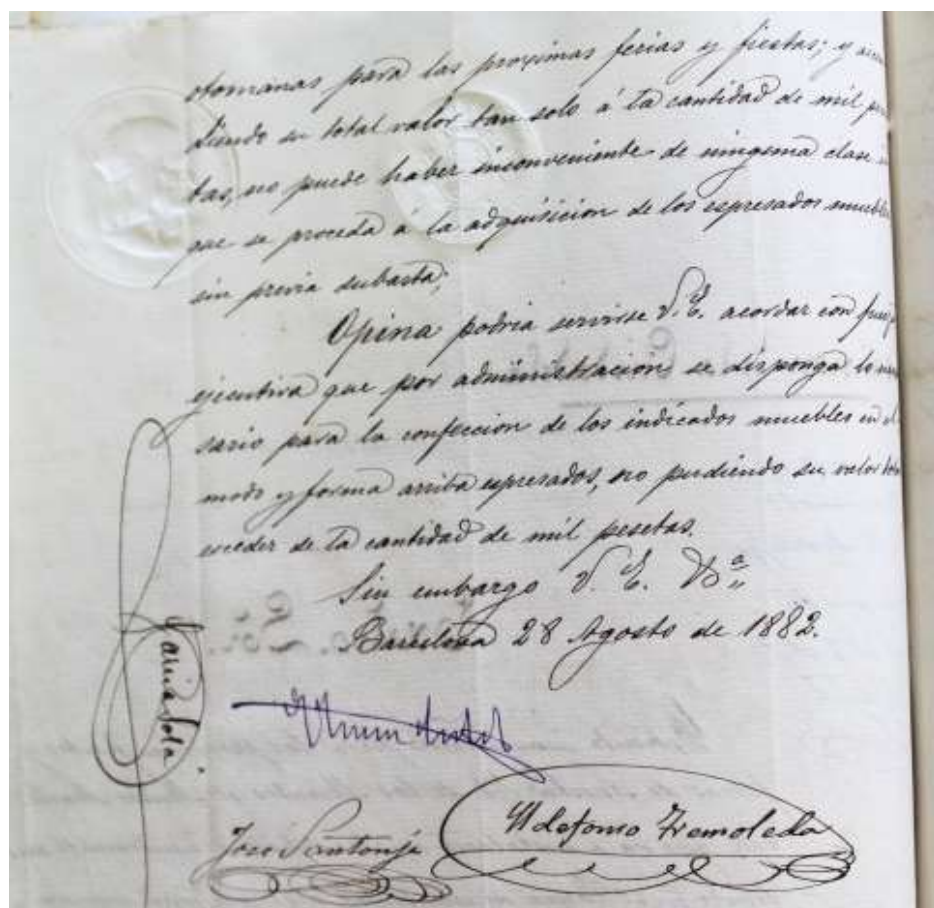 otomanas para las proximas ferias y fiestas; y
diendo su total valor tan solo á la cantidad de mil pe
tas, no puede haber inconveniente de ninguna clase
que se proceda á la adquisicion de los espresados mueble
sin previa subasta;
Opina podria servirse V. E. acordar con
ejecutiva que por administracion se disponga lo
sario para la confeccion de los indicados muebles en el
modo y forma arriba espresados, no pudiendo su valor
esceder de la cantidad de mil pesetas.
Sin embargo V. E.
Barcelona 28 Agosto de 1882.
José Santonja
Ildefonso Tremoleda